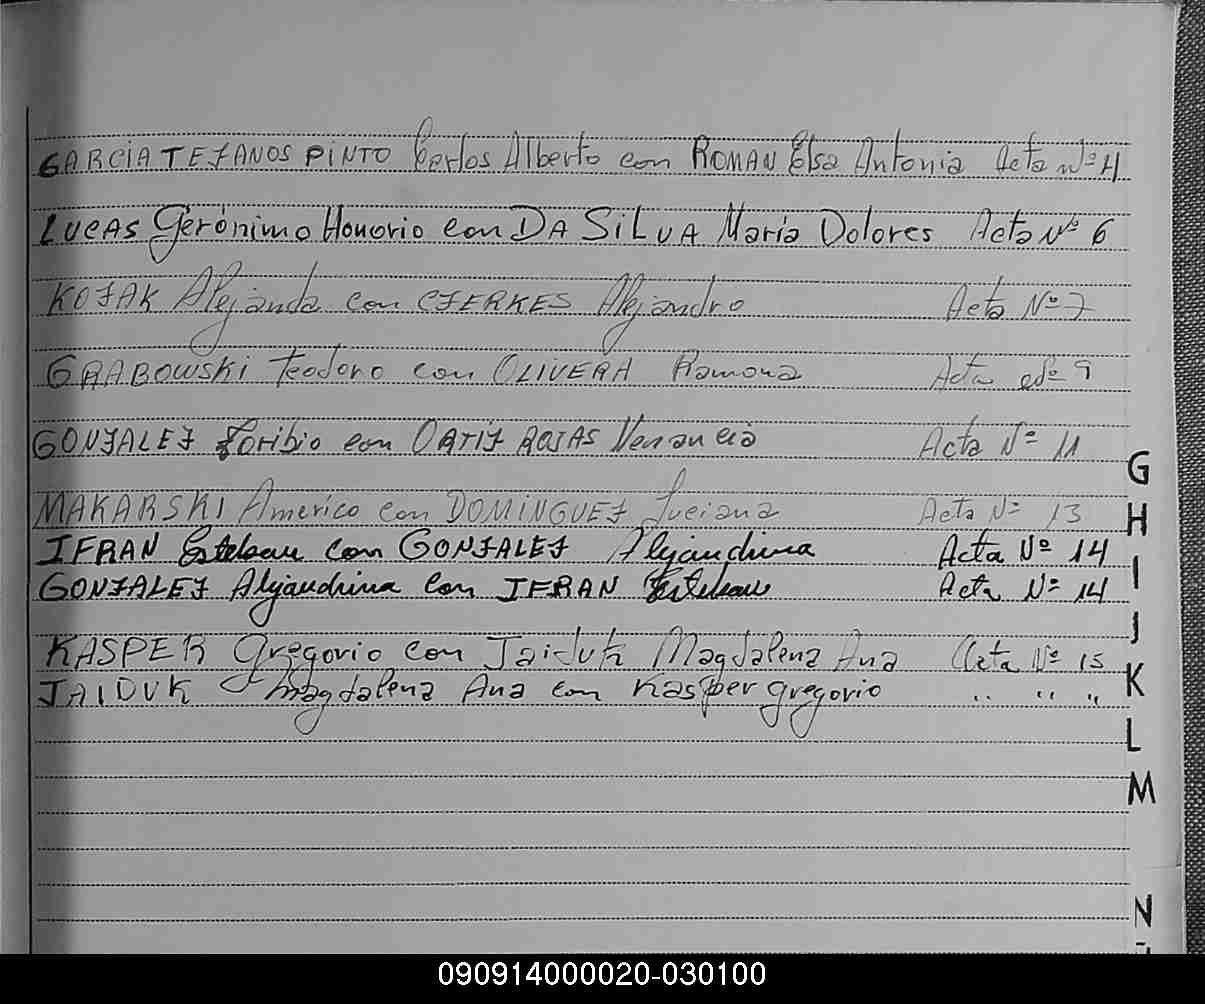 GARCIA TEJANOS PINTO Carlos Alberto con ROMAN Elsa Antonia Acta Nº 4
LUCAS Gerónimo Honorio con DA SILVA María Dolores Acta Nº 6
KOZAK Alejanda con CZERKES Alejandro Acta Nº 7
GRABOWSKI Teodoro con OLIVERA Ramona Acta Nº 9
GONZALEZ Toribio con ORTIZ ROJAS Venancia Acta Nº 11
MAKARSKI Américo con DOMINGUEZ Luciana Acta Nº 13
IFRAN Esteban con GONZALEZ Alejandrina Acta Nº 14
GONZALEZ Alejandrina con IFRAN Esteban Acta Nº 14
KASPER Gregorio con Jaiduk Magdalena Ana Acta Nº 15
JAIDUK Magdalena Ana con Kasper gregorio " " "
G
H
I
J
K
L
M
N
090914000020-030100